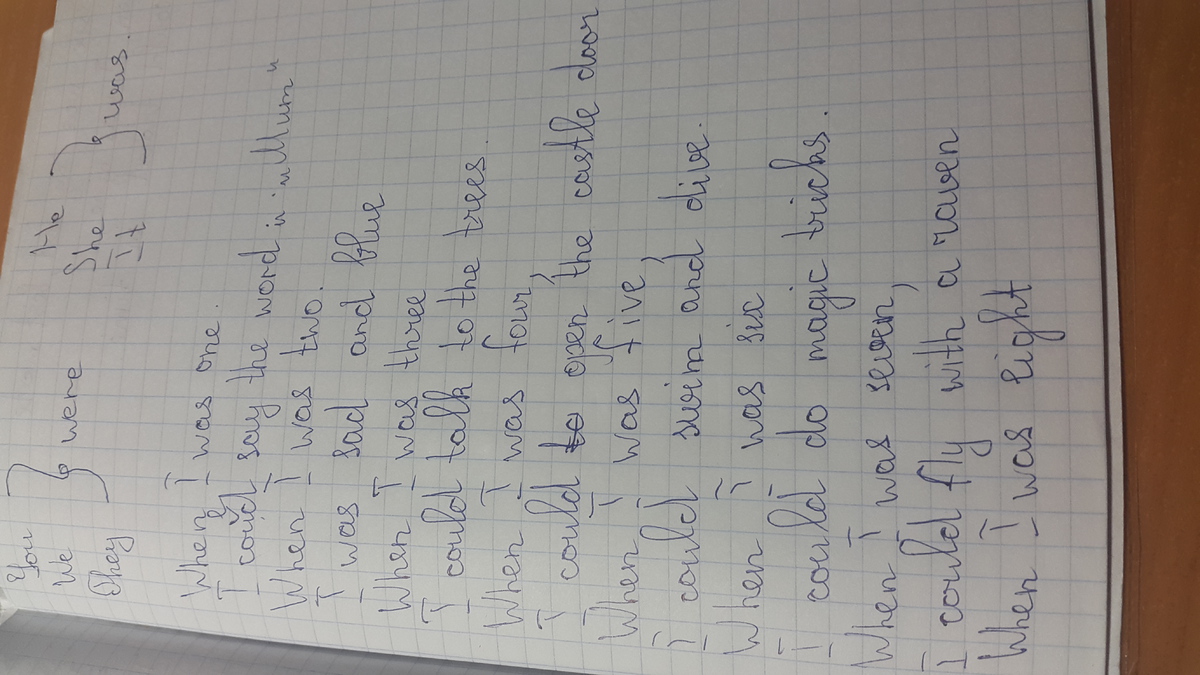 You
We } were
They
He
She } was.
It
When I was one.
I could say the word „Mum"
When I was two.
I was sad and blue
When I was three
I could talk to the trees.
When I was four,
I could to open the castle door
When I was five,
I could swim and dive.
When I was six
I could do magic tricks.
When I was seven,
I could fly with a raven
When I was eight